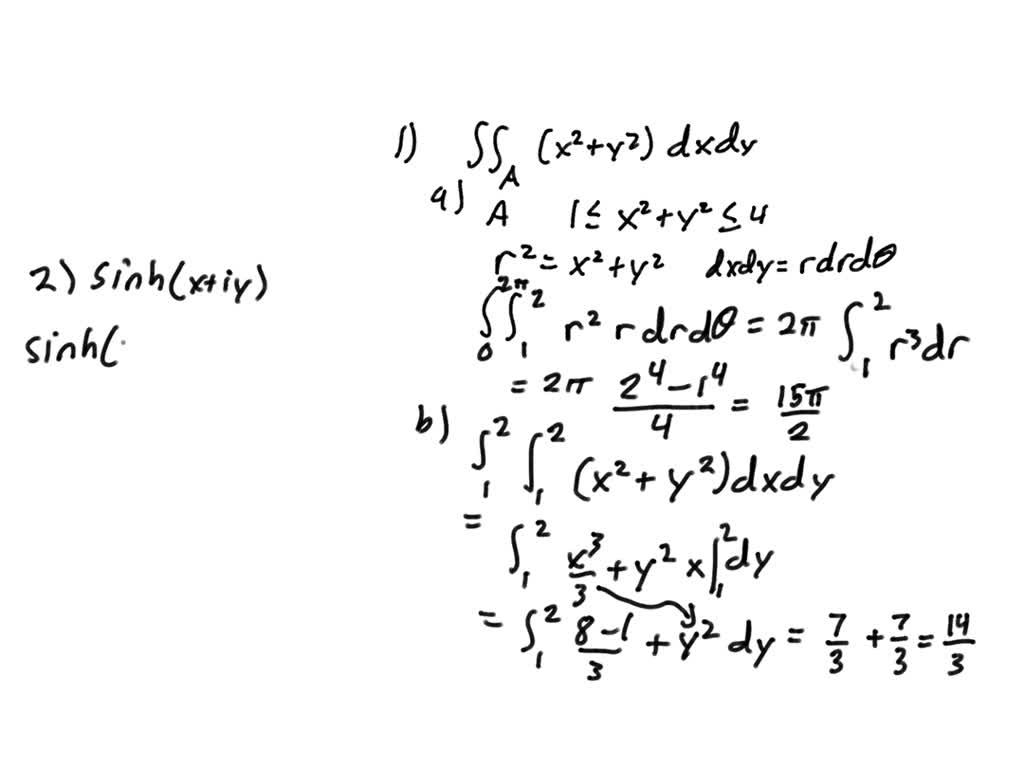 1) ∬_A (x²+y²) dxdy
a) A 1 ≤ x²+y² ≤ 4
r² = x²+y² dxdy = rdrdθ
∫₀^{2π} ∫₁² r² r dr dθ = 2π ∫₁² r³dr
= 2π (2⁴-1⁴)/4 = 15π/2
b) ∫₁² ∫₁² (x²+y²)dxdy
=
∫₁² x³/3 + y² x|₁² dy
= ∫₁² (8-1)/3 + y² dy = 7/3 + 7/3 = 14/3
2) sinh(x+iy)
sinh(